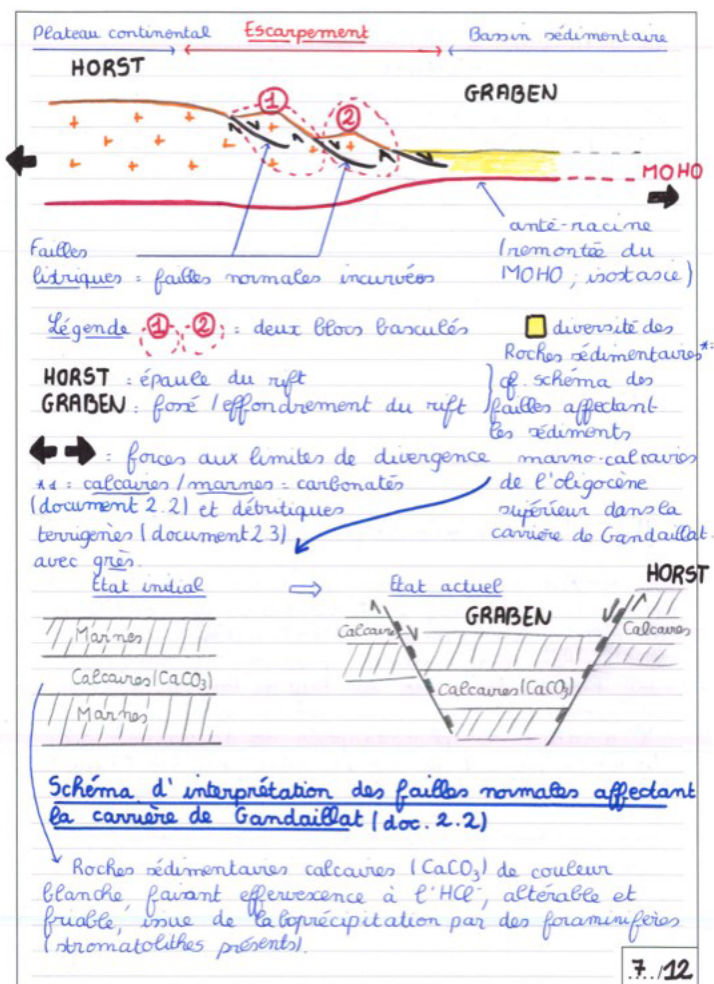 Plateau continental
Escarpement
Bassin sédimentaire
HORST
GRABEN
1
2
MOHO
anté-racine
(remontée du
MOHO ; isostasie)
Failles
listriques : failles normales incurvées
Légende 1 2 : deux blocs basculés
diversité des
Roches sédimentaires*:
cf. schéma des
failles affectant
les sédiments
marno-calcaires
de l'oligocène
supérieur dans la
carrière de Gandaillat.
HORST : épaule du rift
GRABEN : fossé / effondrement du rift
: forces aux limites de divergence
: calcaires / marnes = carbonatés
(document 2.2) et détritiques
terrigènes (document 2.3)
avec grès.
Etat initial ⇒ Etat actuel
HORST
GRABEN
Marnes
Calcaires (CaCO₃)
Marnes
Calcaires
Calcaires (CaCO₃)
Calcaires
Schéma d'interprétation des failles normales affectant
la carrière de Gandaillat (doc. 2.2)
Roches sédimentaires calcaires (CaCO₃) de couleur
blanche, faisant effervescence à l'HCl, altérable et
friable, issue de la bioprécipitation par des foraminifères
(stromatolithes présents).
7../12